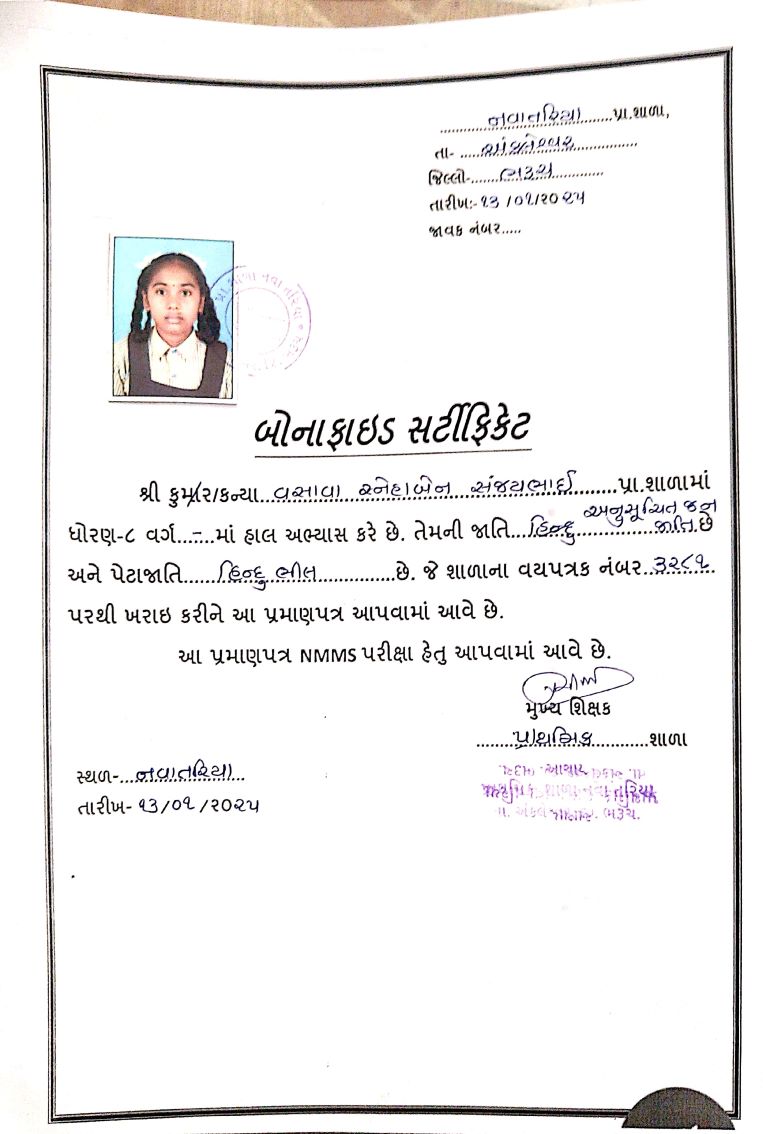 નવાતરિયા પ્રા.શાળા,
તા- અંકલેશ્વર
જિલ્લો- ભરૂચ
તારીખ:- ૧૩/૦૧/૨૦૨૫
જાવક નંબર.....
પ્રા. શાળા નવા તરિયા
બોનાફાઇડ સર્ટીફિકેટ
શ્રી કુમાર/કન્યા વસાવા સ્નેહાબેન સંજયભાઈ પ્રા.શાળામાં
ધોરણ-૮ વર્ગ...-... માં હાલ અભ્યાસ કરે છે. તેમની જાતિ હિન્દુ અનુસૂચિત જન જાતિ છે
અને પેટાજાતિ હિન્દુ ભીલ છે. જે શાળાના વયપત્રક નંબર ૩૨૮૧
પરથી ખરાઇ કરીને આ પ્રમાણપત્ર આપવામાં આવે છે.
આ પ્રમાણપત્ર NMMS પરીક્ષા હેતુ આપવામાં આવે છે.
મુખ્ય શિક્ષક
પ્રાથમિક શાળા
સ્થળ- નવાતરિયા
તારીખ- ૧૩/૦૧/૨૦૨૫